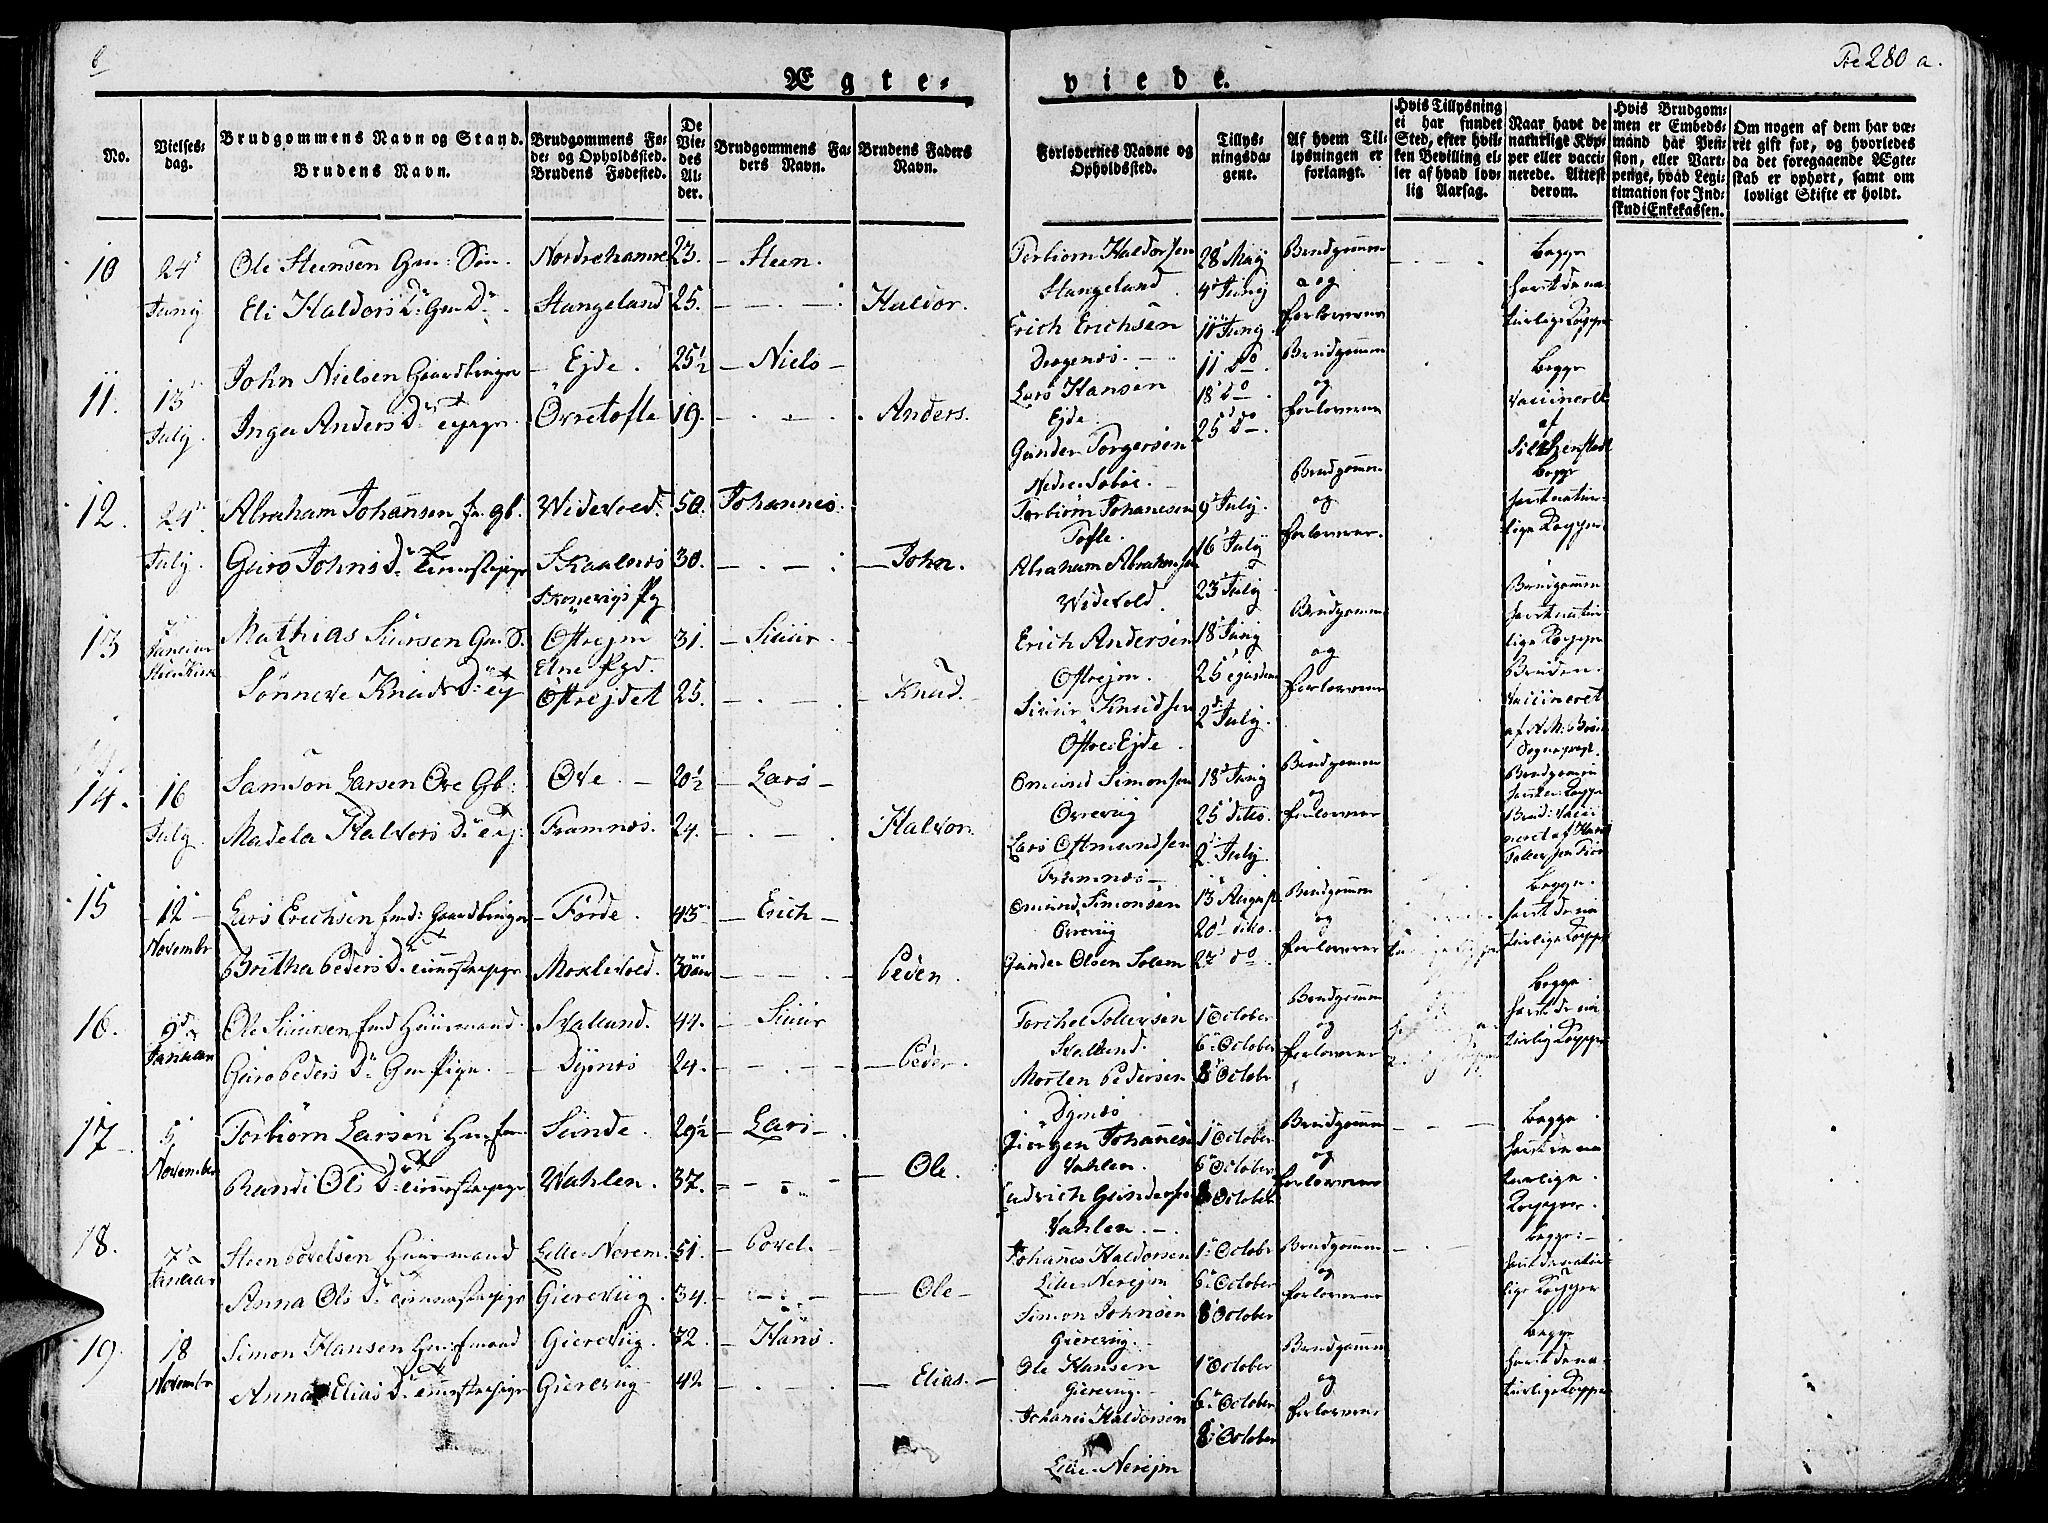 8
Pro 280 a.
Ægte-
viede.
No.
Vielses-
dag.
Brudgommens Navn og Stand.
Brudens Navn.
Brudgommens Fø-
de- og Opholdssted.
Brudens Fødested.
De
Vie-
des
Al-
der.
Brudgommens Fa-
ders Navn.
Brudens Faders
Navn.
Forlovernes Navne og
Opholdssted.
Tillys-
ningsda-
gene.
Af hvem Til-
lysningen er
forlangt.
Hvis Tillysning
ei har fundet
Sted, efter hvil-
ken Bevilling el-
ler af hvad lov-
lig Aarsag.
Naar havt de
naturlige Kop-
per eller vacci-
nerede. Attest
derom.
Hvis Brudgom-
men er Embeds-
mand har Pen-
sion, eller Vart-
penge, hvad Legi-
timation for Ind-
skud i Enkekassen.
Om nogen af dem har væ-
ret gift før, og hvorledes
da det foregaaende Ægte-
skab er ophørt, samt om
lovligt Skifte er holdt.
10
24
Junij
Ole Steensen Gm: Søn.
Eli Haldors D: Gm D:
Stangeland
23.
25.
Steen.
Haldor.
Torbiørn Haldorsen
Stangeland
Erich Erichsen
28 Maij
4 Junij
11 Junij
Brudgommen
og
forloverne
begge
havt de na
turlige Kopper
11.
13
Julij.
John Nielsen Gaardbruger
Inger Anders D: eypige
Ejde.
Øvretofte
25½
19.
Niels
Anders.
Lars Hansen
Ejde
Gunder Torgersen
11 do.
18 do.
25 do.
Brudgommen
og
forloverne
begge
Vaccineret
af
12.
24
Julij.
Abraham Johansen fm: gb.
Guro Johns D:
Widevold.
Skaalnes
Skonevigs Pg
50.
30.
Johannes.
John.
Torbiørn Johanesen
Tofte.
Abraham Abrahamsen
Widevold.
9 Julij.
16 Julij
23 Julij.
Brudgommen
og
forloverne.
begge
havt natur-
lige Kopper
13
Mathias Siursen Gm: S.
Sønneve Knuds D: ey
Østrejm
Etne Pgd.
Østrejdet
31.
25.
Siiur
Knud.
Erich Andersen
Østrejm.
Siiur Knudsen
Østre Ejde.
18 Junij
25 ejusdem
2 Julij.
Brudgommen
og
forloverne
Brudgommen
havt natur-
lige Kopper
Bruden
Vaccineret
14.
16
Julij.
Samson Larsen Ove Gb:
Madela Halvors D: ey:
Ove.
Framnes.
20½
24.
Lars
Halvor.
Omund Simonsen
Ovrevig
Lars Ostmundsen
Framnes
18 Junij
25 dito.
2 Julij.
Brudgommen
og
forlovere
15
12
Novembr
Lars Erichsen fmd: Gaardbruger
Britha Peders D:
Førde.
Moxlevold.
43
30
Erich
Peder.
Omund Simonsen
Ovrevig
Gunder Olsen Solem
13 August
20 dito.
27 do.
Brudgommen
og
forlovere
begge.
havt de na
turlige Kopper
16.
9
Januar
Ole Siiursen fmd Huusmand.
Guro Peders D: Gm: Pige
Svalund.
Djnes
44.
24.
Siiur
Peder.
Torchel Tollevsen
Svalund.
Morten Pedersen
Djnes
1 October
6 October
8 October
Brudgommen
og
forlovere
begge
havt de na
turlig Kopper
17
5
November
Torbiørn Larsen Hm: fm
Randi Ols D:
Sunde.
Wahlen.
29½
37.
Lars
Ole.
Jørgen Johannes
Vahlen.
Ludvich Gundersen
Vahlen.
1 October
6 October
8 October
Brudgommen
og
forloverne
begge
havt de na
turlige
Kopper.
18.
7
Januar
Steen Povelsen Huusmand
Anna Ols D:
Lille Nerem.
Gierevig.
51.
34.
Povel.
Ole
Johanes Haldorsen
Lille Nerejm
Simon Johnsen
Gierevig.
1 October
6 October
8 October
Brudgommen
og
forlovere
begge:
havt de natur
lige Kopper
19.
18
Novembr
Simon Hansen Hm: fmand
Anna Elias D:
Gierevig.
Gierevig
72.
42
Hans
Elias.
Ole Hansen
Gierevig.
Johanes Haldorsen
Lille Nerejm
1 October
6 October
8 October
Brudgommen
og
forlovere.
begge
havt de na-
turlige Kopper